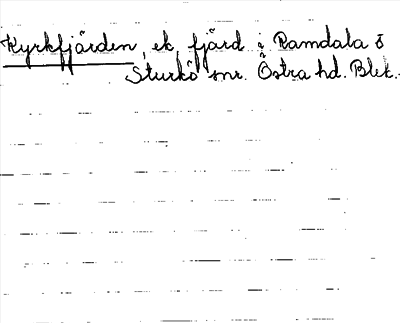 Kyrkfjärden, ek. fjärd i Ramdala o
Sturkö snr. Östra hd. Blek.